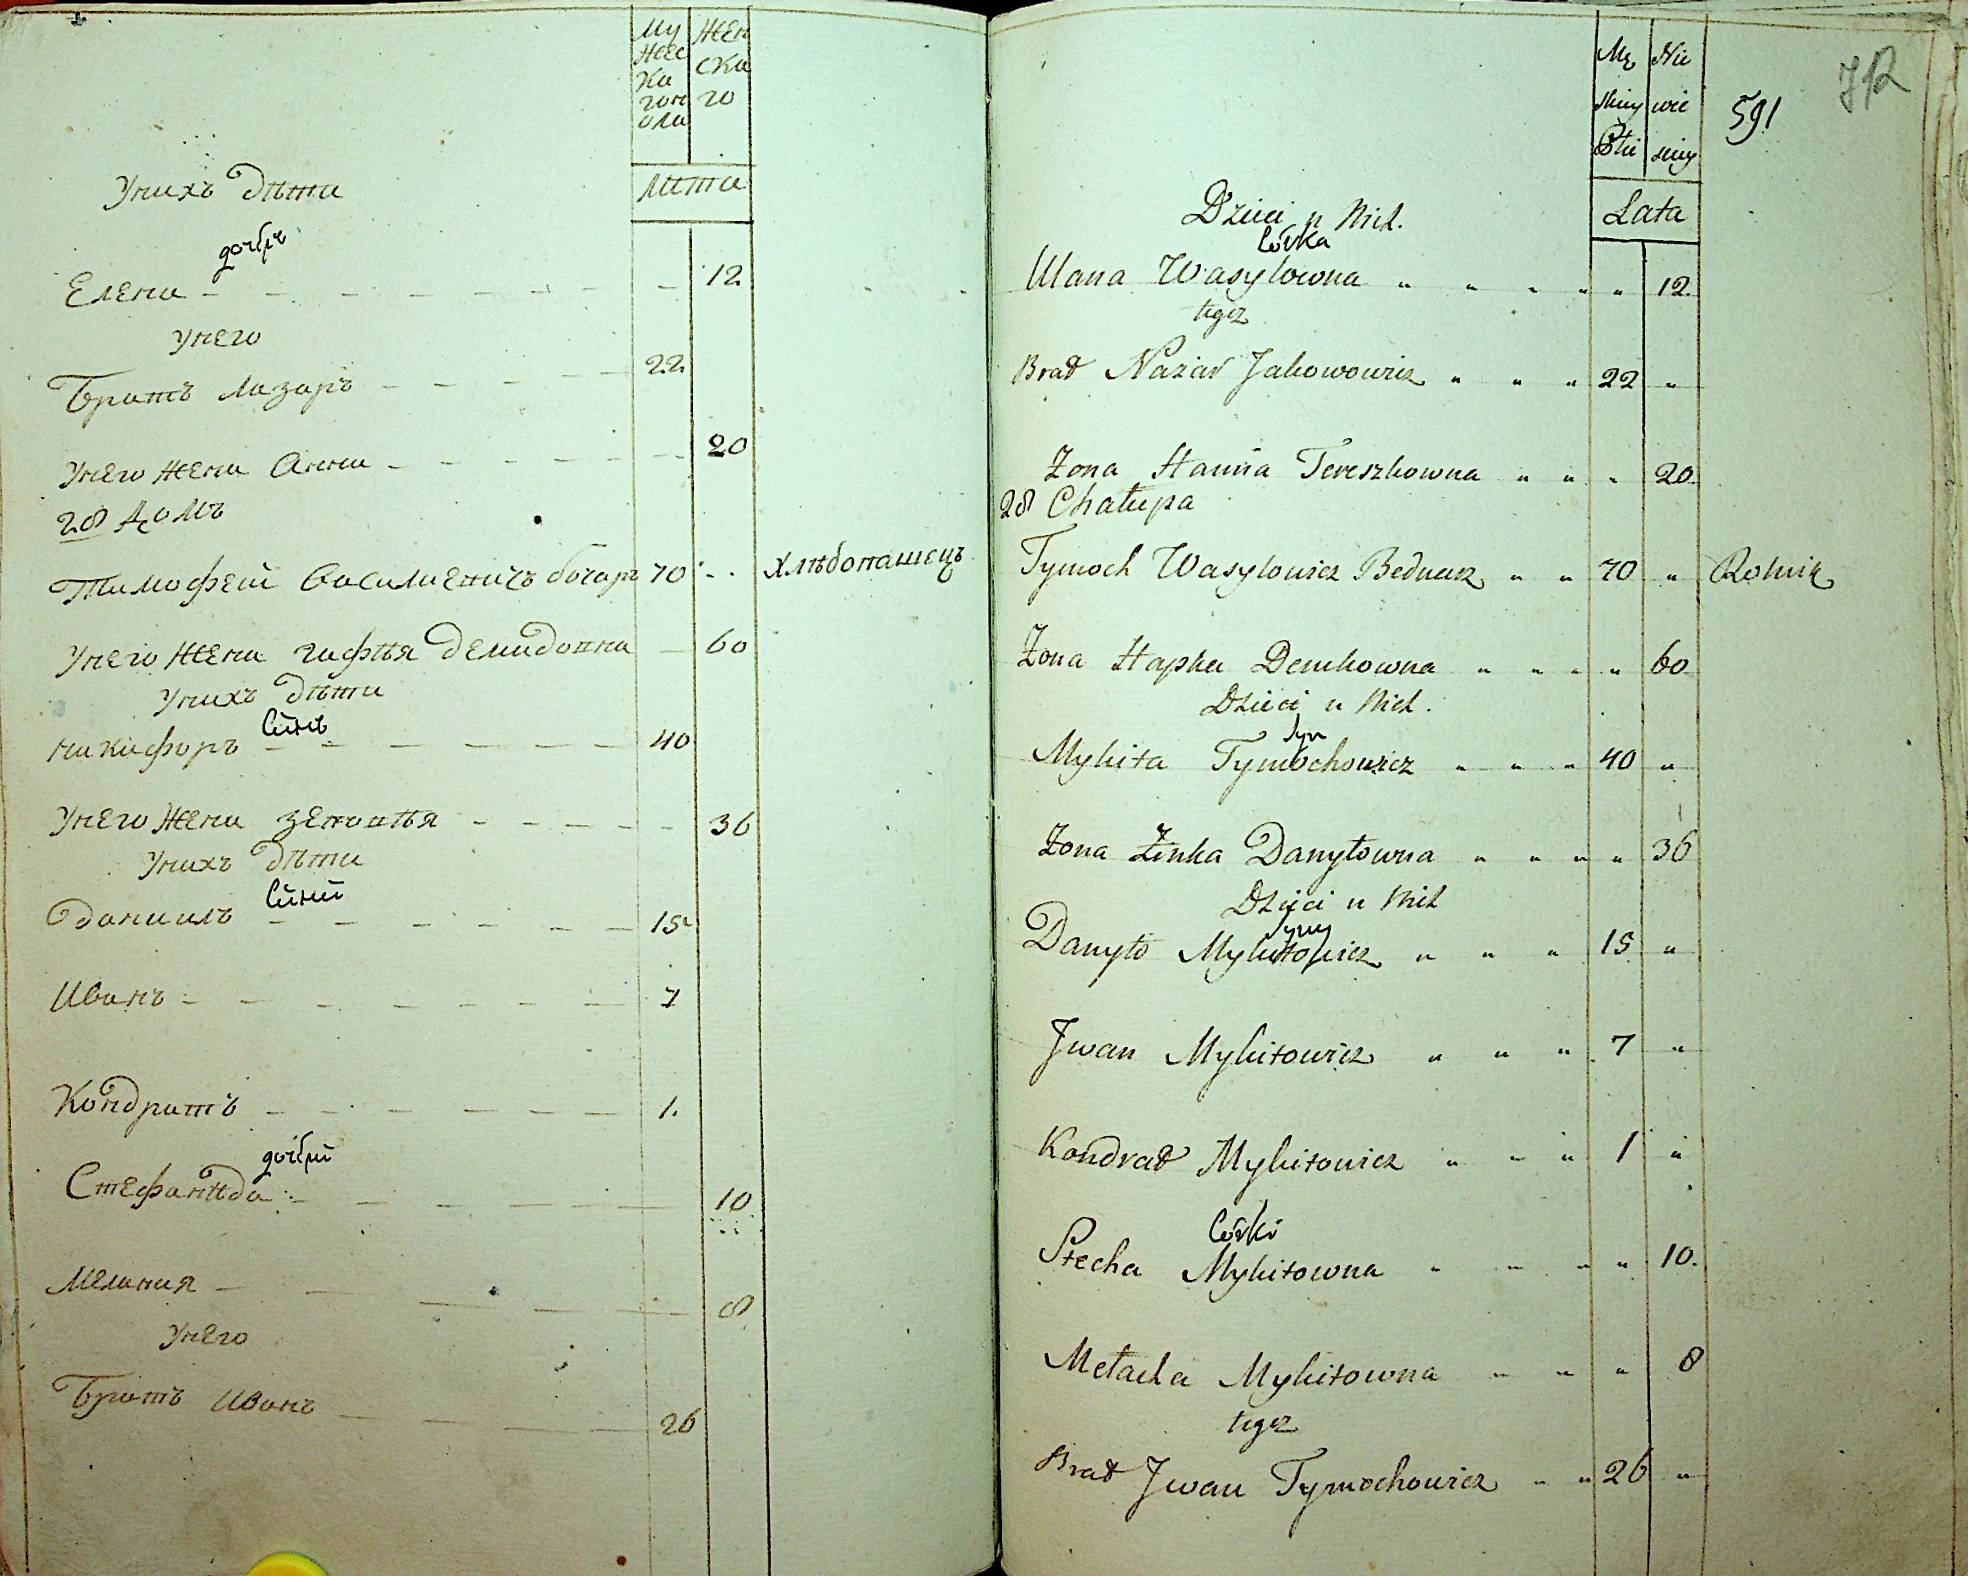 Му Жен
жес ска
ка го
гоп
ола
Лѣта
Унихъ дѣти
дочъ
Елена - - - - - - - - 12
Унего
Братъ Лазаръ - - - - - 22
Унего жена Анна - - - - - - 20
28 Домъ
Тимофей Василиевичъ бочаръ 70 - - Хлѣбопашецъ
Унего жена гафѣя демидовна - 60
Унихъ дѣти
Синъ
никифоръ - - - - - - 40
Унего жена зеновѣя - - - - - - 36
Унихъ дѣти
Сини
даниилъ - - - - - - 15
Иванъ - - - - - - - 7
Кондратъ - - - - - - 1.
дочъри
Стефанѣда - - - - - 10
Мелания - - - - - - - 8
Унего
Братъ Иванъ - - - - 26
Mę Nie
skiey wie
Płci sciey
Lata
591
712
Dzieci u Nich.
Córka
Ulana Wasylowna " " " " " 12.
tegoz
Brat Nazar Jakowowicz " " " 22 "
Zona Hanna Tereszkowna " " " 20.
28 Chałupa
Tymoch Wasylowicz Bednarz " " 70 " Rolnik
Zona Hapka Demkowna " " " " 60
Dzieci u Nich.
Syn
Mykita Tymochowicz " " " 40 "
Zona Zinka Danyłowna " " " " 36
Dzieci u Nich
Syny
Danyło Mykitowicz " " " 15 "
Jwan Mykitowicz " " " 7 "
Kondrat Mykitowicz " " " 1 "
Córki
Stecha Mykitowna " " " " 10.
Mełacha Mykitowna " " " 8
tegoz
Brat Jwan Tymochowicz " " 26 "